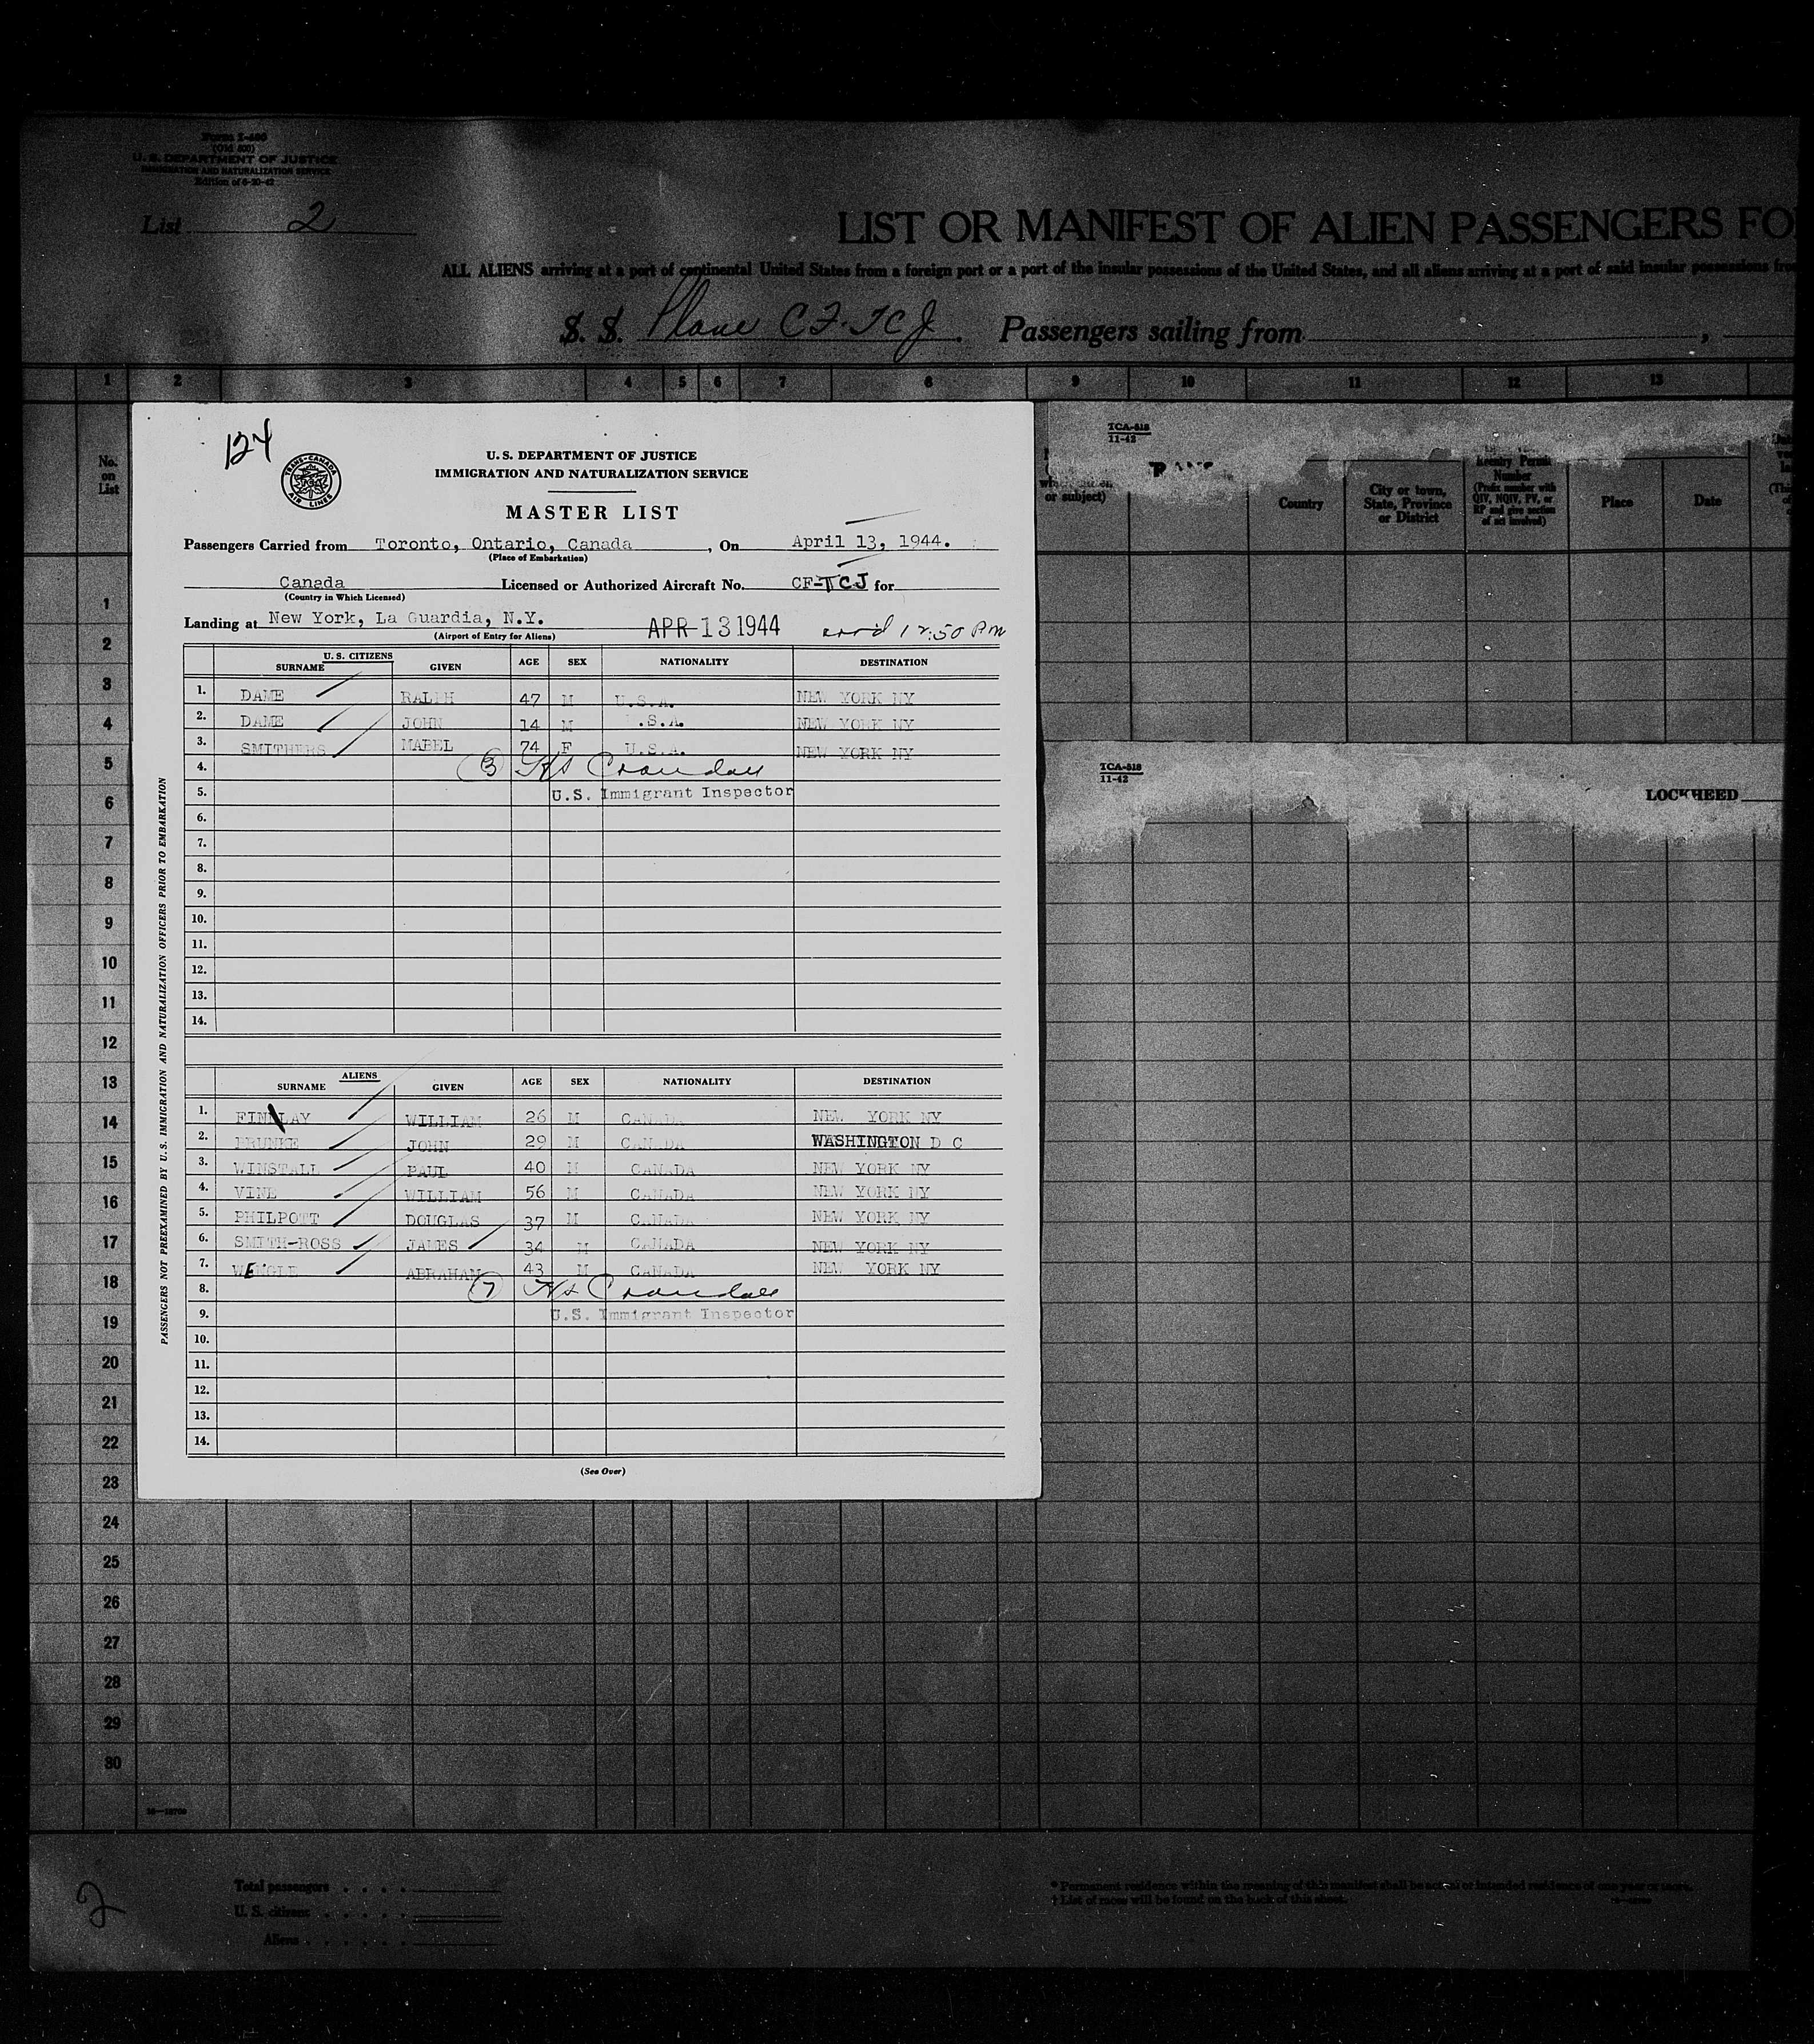 Form I-400
(Old 500)
U. S. DEPARTMENT OF JUSTICE
IMMIGRATION AND NATURALIZATION SERVICE
Edition of 6-20-42
List 2
LIST OR MANIFEST OF ALIEN PASSENGERS FO
ALL ALIENS arriving at a port of continental United States from a foreign port or a port of the insular possessions of the United States, and all aliens arriving at a port of said insular possessions fro
S. S. Plane CF-TCJ. Passengers sailing from ,
1 2 3 4 5 6 7 8 9 10 11 12 13
No. on List
or subject)
Country
City or town, State, Province or District
Reentry Permit Number (Prefix number with QIV, NQIV, PV, or RP and give section of act involved)
Place
Date
TCA-518
11-42
TCA-518
11-42
LOCKHEED
124
TRANS-CANADA AIR LINES
U. S. DEPARTMENT OF JUSTICE
IMMIGRATION AND NATURALIZATION SERVICE
MASTER LIST
Passengers Carried from Toronto, Ontario, Canada, On April 13, 1944.
(Place of Embarkation)
Canada Licensed or Authorized Aircraft No. CF-TCJ for
(Country in Which Licensed)
Landing at New York, La Guardia, N.Y. APR 13 1944 arr'd 12:50 PM
(Airport of Entry for Aliens)
U. S. CITIZENS
SURNAME GIVEN AGE SEX NATIONALITY DESTINATION
1. DAME RALPH 47 M U.S.A. NEW YORK NY
2. DAME JOHN 14 M .S.A. NEW YORK NY
3. SMITHERS MABEL 74 F U.S.A. NEW YORK NY
4. 3 Crandall
5. U.S. Immigrant Inspector
6.
7.
8.
9.
10.
11.
12.
13.
14.
ALIENS
SURNAME GIVEN AGE SEX NATIONALITY DESTINATION
1. FINDLAY WILLIAM 26 M CANADA NEW YORK NY
2. JOHN 29 M CANADA WASHINGTON D C
3. WINSTALL PAUL 40 M CANADA NEW YORK NY
4. VINE WILLIAM 56 M CANADA NEW YORK NY
5. PHILPOTT DOUGLAS 37 M CANADA NEW YORK NY
6. SMITH-ROSS JAMES 34 M CANADA NEW YORK NY
7. WENGLE ABRAHAM 43 M CANADA NEW YORK NY
8. 7 Crandall
9. U.S. Immigrant Inspector
10.
11.
12.
13.
14.
(See Over)
PASSENGERS NOT PREEXAMINED BY U.S. IMMIGRATION AND NATURALIZATION OFFICERS PRIOR TO EMBARKATION
1
2
3
4
5
6
7
8
9
10
11
12
13
14
15
16
17
18
19
20
21
22
23
24
25
26
27
28
29
30
2
Total passengers . . . .
U. S. citizens . . . . .
Aliens . . . . . .
* Permanent residence within the meaning of this manifest shall be actual or intended residence of one year or more.
† List of races will be found on the back of this sheet.